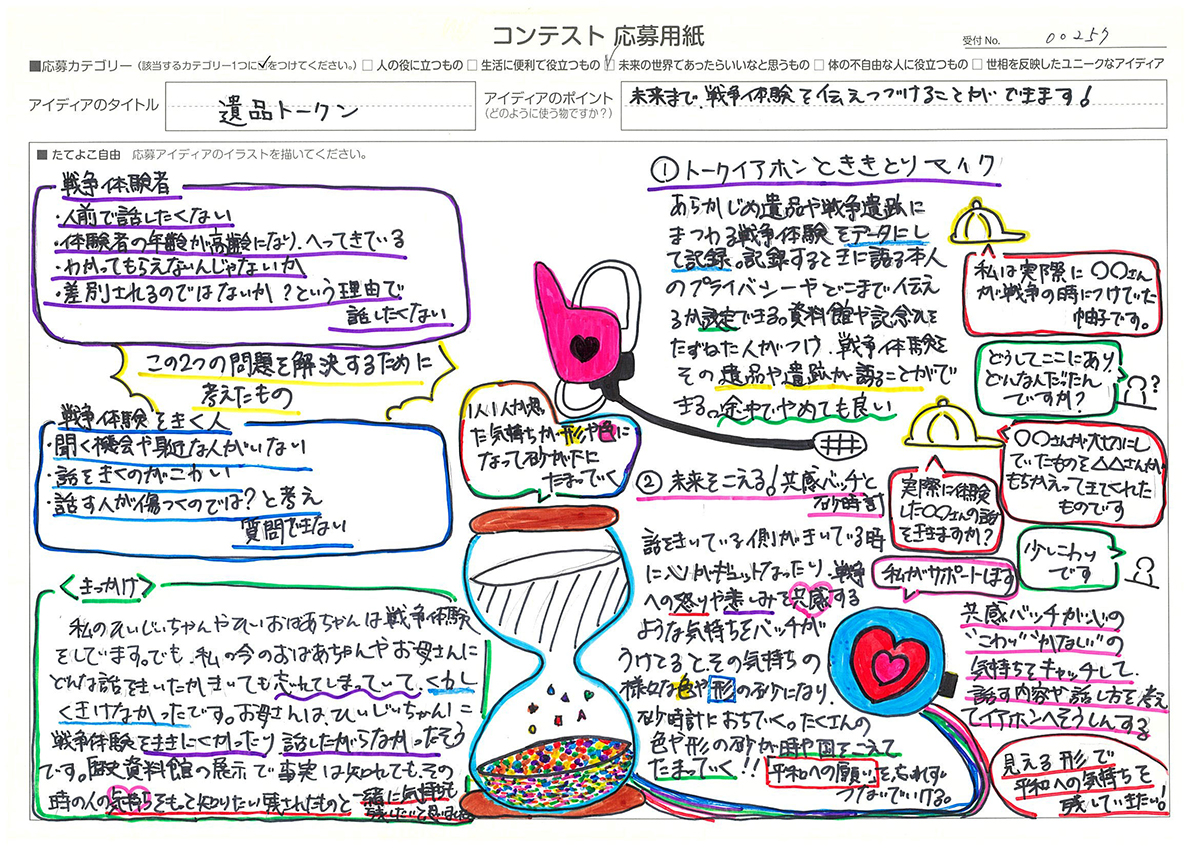 コンテスト 応募用紙
受付 No. 00257
■応募カテゴリー（該当するカテゴリー1つに✓をつけてください。） □ 人の役に立つもの □ 生活に便利で役立つもの ☑ 未来の世界であったらいいなと思うもの □ 体の不自由な人に役立つもの □ 世相を反映したユニークなアイディア
アイディアのタイトル
遺品トークン
アイディアのポイント
（どのように使う物ですか？）
未来まで、戦争体験を伝えつづけることができます！
■ たてよこ自由 応募アイディアのイラストを描いてください。
戦争体験者
・人前で話したくない
・体験者の年齢が高齢になり、へってきている
・わかってもらえないんじゃないか
・差別されるのではないか？という理由で
話したくない
この2つの問題を解決するために
考えたもの
戦争体験をきく人
・聞く機会や身近な人がいない
・話をきくのがこわい
・話す人が傷つくのでは？と考え
質問できない
<きっかけ>
私のひいじいちゃんやひいおばあちゃんは戦争体験
をしています。でも、私の今のおばあちゃんやお母さんに
どんな話をきいたかきいても忘れてしまっていて、くわし
くきけなかったです。お母さんは、ひいじいちゃんに
戦争体験をききにくかったり話したがらなかったそう
です。歴史資料館の展示で事実は知れても、その
時の人の気持ちをもっと知りたい残されたものと一緒に気持ちも
残したいと思いました
①トークイアホンとききとりマイク
あらかじめ遺品や戦争遺跡に
まつわる戦争体験をデータにし
て記録。記録するときに語る本人
のプライバシーやどこまで伝え
るか設定できる。資料館や記念館を
たずねた人がつけ、戦争体験を
その遺品や遺跡が語ることがで
きる。途中でやめても良い
私は実際に〇〇さん
が戦争の時につけていた
帽子です。
どうしてここにあり、
どんなんだったん
ですか？
?
〇〇さんが大切にし
ていたものを△△さんが
もちかえってきてくれた
ものです
実際に体験
した〇〇さんの話
をききますか？
少しこわい
です
私がサポートします
1人1人が思っ
た気持ちが形や色に
なって砂がたに
たまっていく
②未来をこえる！共感バッチと
砂時計
話をきいている側がきいている時
に心がギュッとなったり、戦争
への怒りや悲しみを共感する
ような気持ちをバッチが
うけてると、その気持ちの
様々な色や形の砂になり、
砂時計におちていく。たくさんの
色や形の砂が時や国をこえて
たまっていく!!
平和への願いを忘れず
つないでいける。
共感バッチが心の
"こわい""かなしい"の
気持ちをキャッチして、
話す内容や話し方を考え
てイアホンへそうしんする
見える形で
平和への気持ちを
残していきたい！